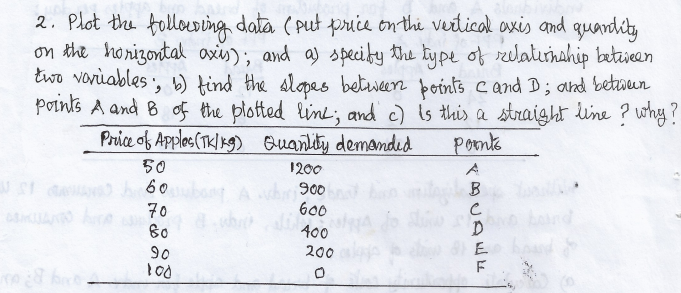 2. Plot the following data (put price on the vertical axis and quantity
on the horizontal axis); and a) specify the type of relationship between
two variables; b) find the slopes between points C and D; and between
points A and B of the plotted line; and c) Is this a straight line? why?
Price of Apples (TK/kg) Quantity demanded Points
50 1200 A
60 900 B
70 600 C
80 400 D
90 200 E
100 0 F